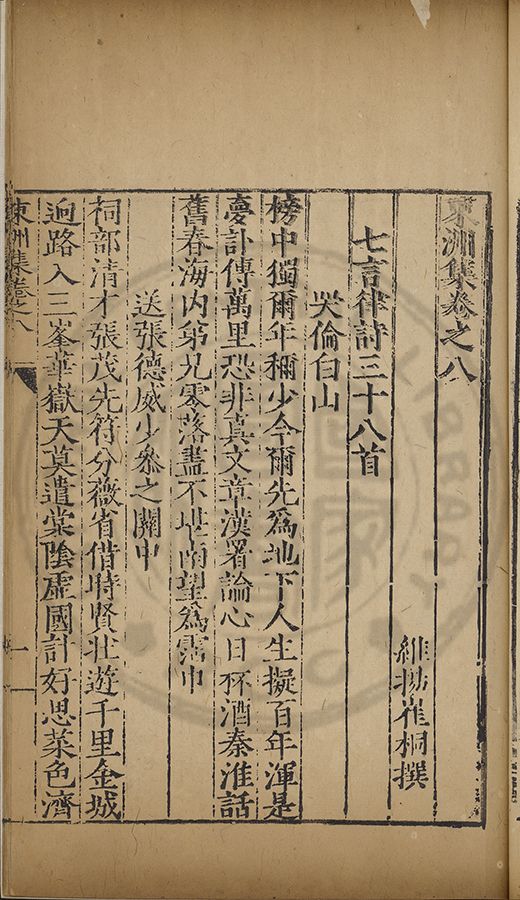 東洲集卷之八
維揚崔桐撰
七言律詩三十八首
哭倫白山
榜中獨爾年稱少今爾先爲地下人生擬百年渾是
夢訃傳萬里恐非真文章漢署論心日杯酒秦淮話
舊春海内弟兄零落盡不堪南望爲霑巾
送張德威少叅之關中
祠部清才張茂先符分薇省借時賢壯遊千里金城
逈路入三峯華嶽天莫遣棠陰虛國計好思菜色濟
東洲集卷之八
一